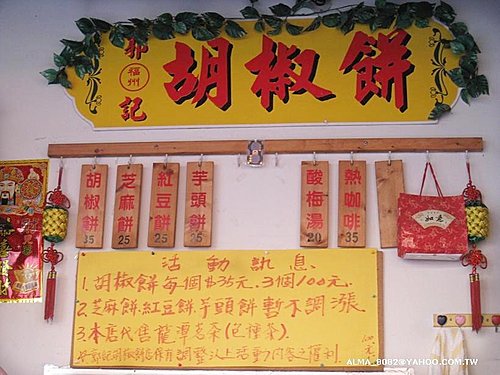 郭記
福州
胡椒餅
胡椒餅 35
芝麻餅 25
紅豆餅 25
芋頭餅 25
酸梅湯 20
熱咖啡 35
如意
活動訊息
1.胡椒餅每個$35元.3個100元.
2.芝麻餅.紅豆餅.芋頭餅暫不調漲
3.本店代售龍潭茗茶(包種茶).
郭記胡椒餅店保有調整以上活動內容之權利
ALMA_8082@YAHOO.COM.TW